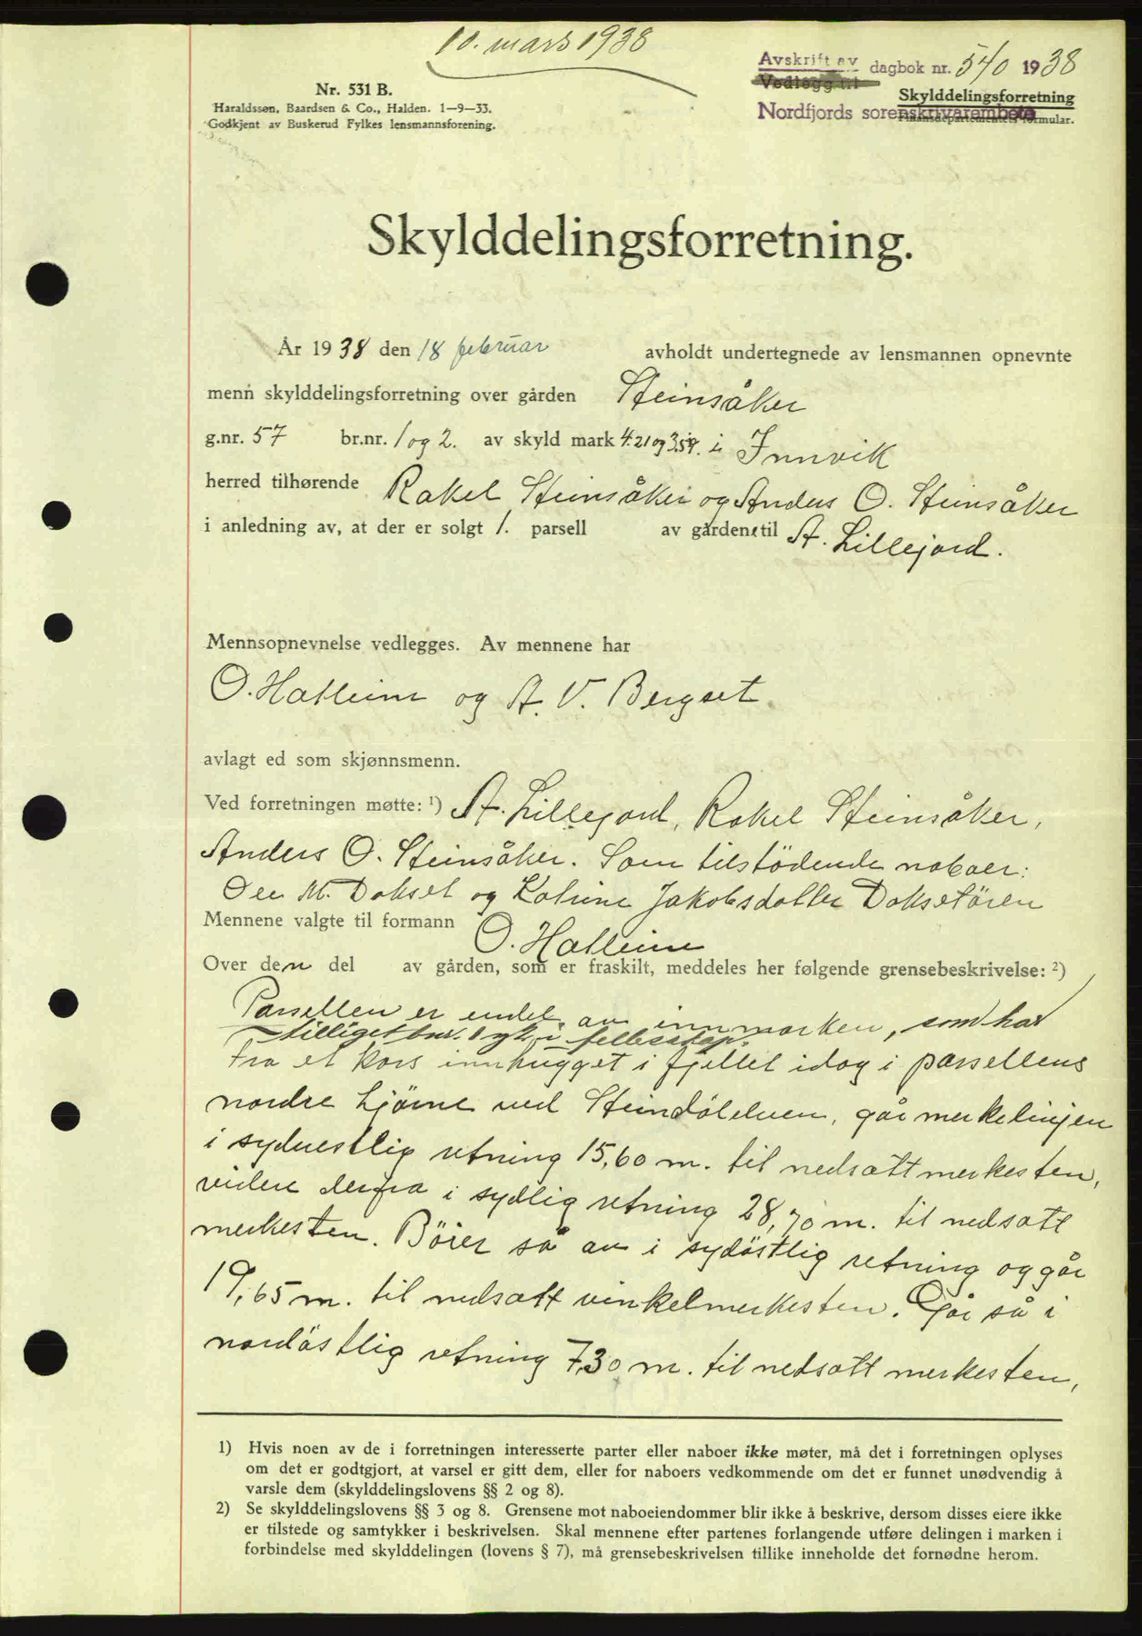 10. mars 1938
Avskrift av dagbok nr. 540 1938
Vedlegg til
Nordfjords sorenskrivarembete
Nr. 531 B.
Haraldssen, Baardsen & Co., Halden. 1—9—33.
Godkjent av Buskerud Fylkes lensmannsforening.
Skylddelingsforretning
Finansdepartementets formular.
Skylddelingsforretning.
År 1938 den 18 februar avholdt undertegnede av lensmannen opnevnte
menn skylddelingsforretning over gården Steinsåker
g.nr. 57 br.nr. 1 og 2. av skyld mark 4.21 og 3.59. i Innvik
herred tilhørende Rakel Steinsåker og Anders O. Steinsåker
i anledning av, at der er solgt 1. parsell av gården til A. Lillejord.
Mennsopnevnelse vedlegges. Av mennene har
O. Hatleim og A. V. Bergset
avlagt ed som skjønnsmenn.
Ved forretningen møtte: 1) A. Lillejord, Rakel Steinsåker,
Anders O. Steinsåker. Som tilstödende naboer:
M. Dokset og Katrine Jakobsdatter Doksetören
Mennene valgte til formann O. Hatleim
Over den del av gården, som er fraskilt, meddeles her følgende grensebeskrivelse: 2)
Parsellen er endel av innmarken, som har
tilliget bnr. 1 og 2 i fellesskap.
Fra et kors innhugget i fjellet idag i parsellens
nordre hjörne ved Steindölelven, går merkelinjen
i sydvestlig retning 15,60 m. til nedsatt merkesten,
videre derfra i sydlig retning 28,70 m. til nedsatt
merkesten. Böier så av i sydöstlig retning og går
19,65 m. til nedsatt vinkelmerkesten. Går så i
nordöstlig retning 7,30 m. til nedsatt merkesten,
1) Hvis noen av de i forretningen interesserte parter eller naboer ikke møter, må det i forretningen oplyses
om det er godtgjort, at varsel er gitt dem, eller for naboers vedkommende om det er funnet unødvendig å
varsle dem (skylddelingslovens §§ 2 og 8).
2) Se skylddelingslovens §§ 3 og 8. Grensene mot naboeiendommer blir ikke å beskrive, dersom disses eiere ikke
er tilstede og samtykker i beskrivelsen. Skal mennene efter partenes forlangende utføre delingen i marken i
forbindelse med skylddelingen (lovens § 7), må grensebeskrivelsen tillike inneholde det fornødne herom.